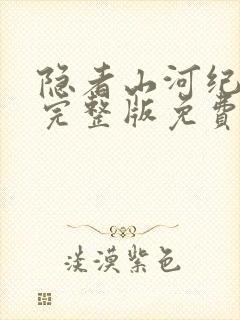 隐者山河纪
完整版免费
淡漠紫色